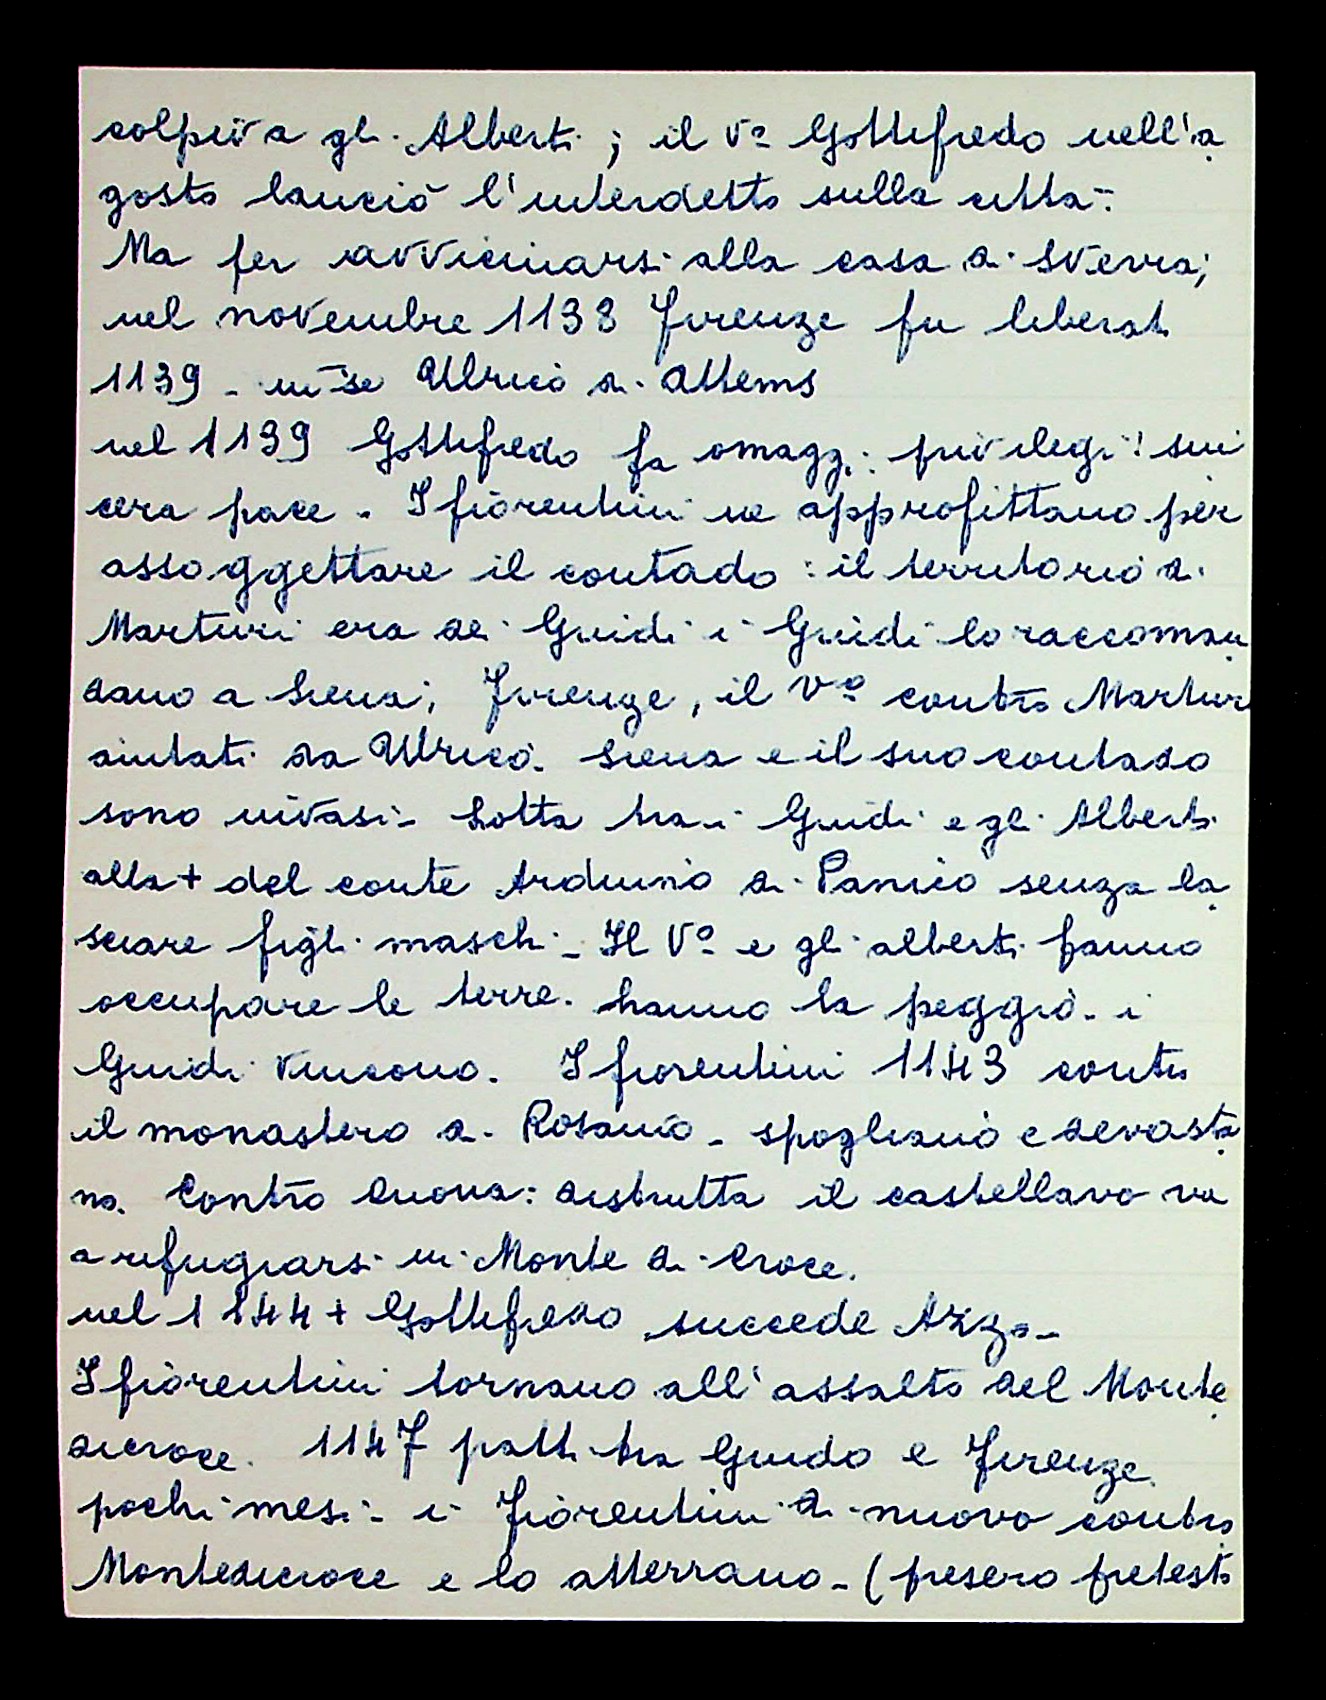 colpiva gli Alberti; il Vº Gottifredo nell'a
gosto lanciò l'interdetto sulla città.
Ma per avvicinarsi alla casa di Svevia;
nel novembre 1138 Firenze fu liberata
1139 - m-se Ulrico di Attems
nel 1139 Gottifredo fa omaggi: privilegi! sin
cera pace - I fiorentini ne approfittano per
assoggettare il contado: il territorio di
Marturi era dei Guidi i Guidi lo raccoman
dano a Siena; Firenze, il Vº contro Marturi
aiutati da Ulrico. Siena e il suo contado
sono invasi - Lotta tra i Guidi e gli Alberti
alla + del conte Arduino di Panico senza la
sciare figli maschi - Il Vº e gli alberti fanno
occupare le terre. hanno la peggio - i
Guidi vincono. I fiorentini 1143 contro
il monastero di Rosano - spogliano e devasta
no. Contro Quona: distrutta il castellavo va
a rifugiarsi in Monte di Croce.
nel 1144 + Gottifredo succede Azzo -
I fiorentini tornano all'assalto del Monte
dicroce. 1147 patti tra Guido e Firenze.
pochi mesi - i fiorentini di nuovo contro
Montedicroce e lo atterrano - (presero pretesto